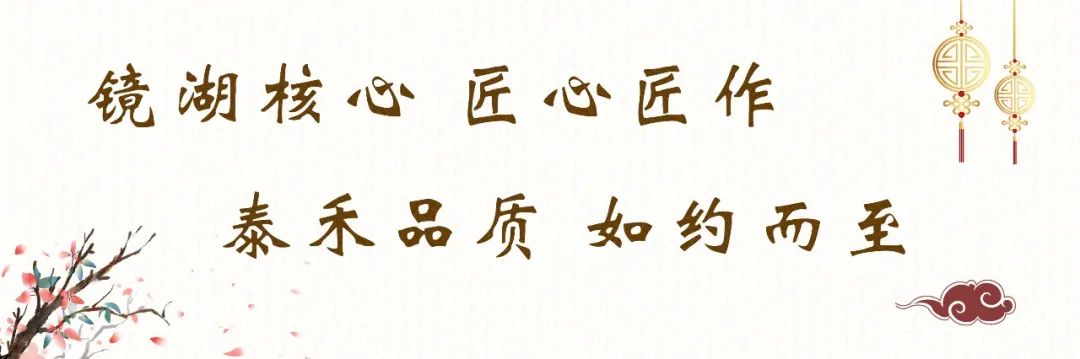 镜湖核心 匠心匠作
泰禾品质 如约而至